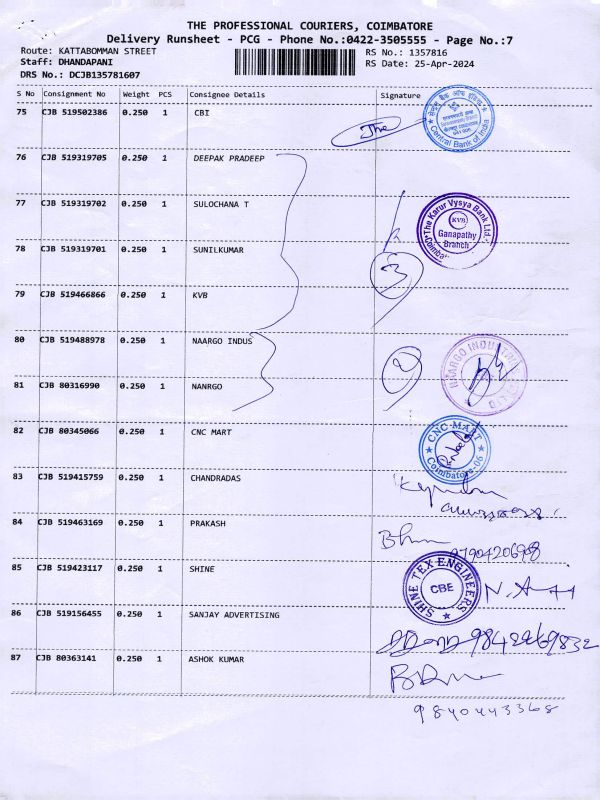 THE PROFESSIONAL COURIERS, COIMBATORE
Delivery Runsheet - PCG - Phone No.:0422-3505555 - Page No.:7
Route: KATTABOMMAN STREET
RS No.: 1357816
Staff: DHANDAPANI
RS Date: 25-Apr-2024
DRS No.: DCJB135781607
S No Consignment No Weight PCS Consignee Details Signature
75 CJB 519502386 0.250 1 CBI
Central Bank of India
76 CJB 519319705 0.250 1 DEEPAK PRADEEP
77 CJB 519319702 0.250 1 SULOCHANA T
The Karur Vysya Bank Ltd.
KVB
Ganapathy
Branch
78 CJB 519319701 0.250 1 SUNILKUMAR
3
79 CJB 519466866 0.250 1 KVB
80 CJB 519488978 0.250 1 NAARGO INDUS
81 CJB 80316990 0.250 1 NANRGO
82 CJB 80345066 0.250 1 CNC MART
CNC-MART
Coimbatore-06
83 CJB 519415759 0.250 1 CHANDRADAS
84 CJB 519463169 0.250 1 PRAKASH
9790420698
85 CJB 519423117 0.250 1 SHINE
SHINE TEX ENGINEERS
CBE
86 CJB 519156455 0.250 1 SANJAY ADVERTISING
9842269832
87 CJB 80363141 0.250 1 ASHOK KUMAR
9840443368